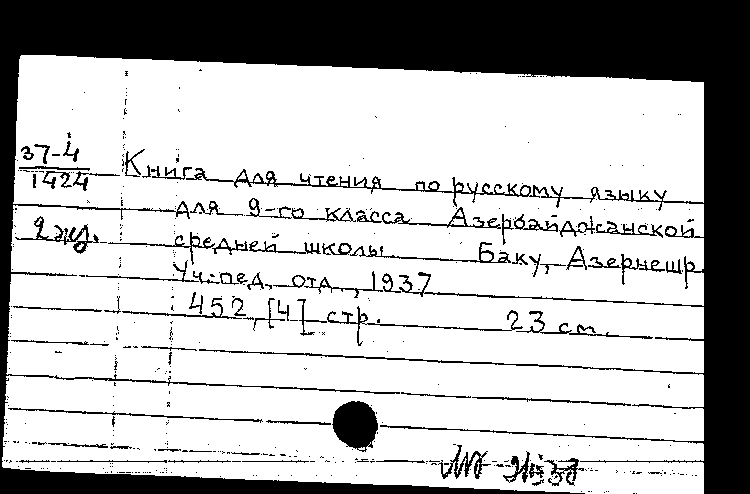 37-4
1424
Книга для чтения по русскому языку
для 9-го класса Азербайджанской
2 экз. средней школы. Баку, Азернешр.
Уч.-пед. отд., 1937
452, [4] стр. 23 см.